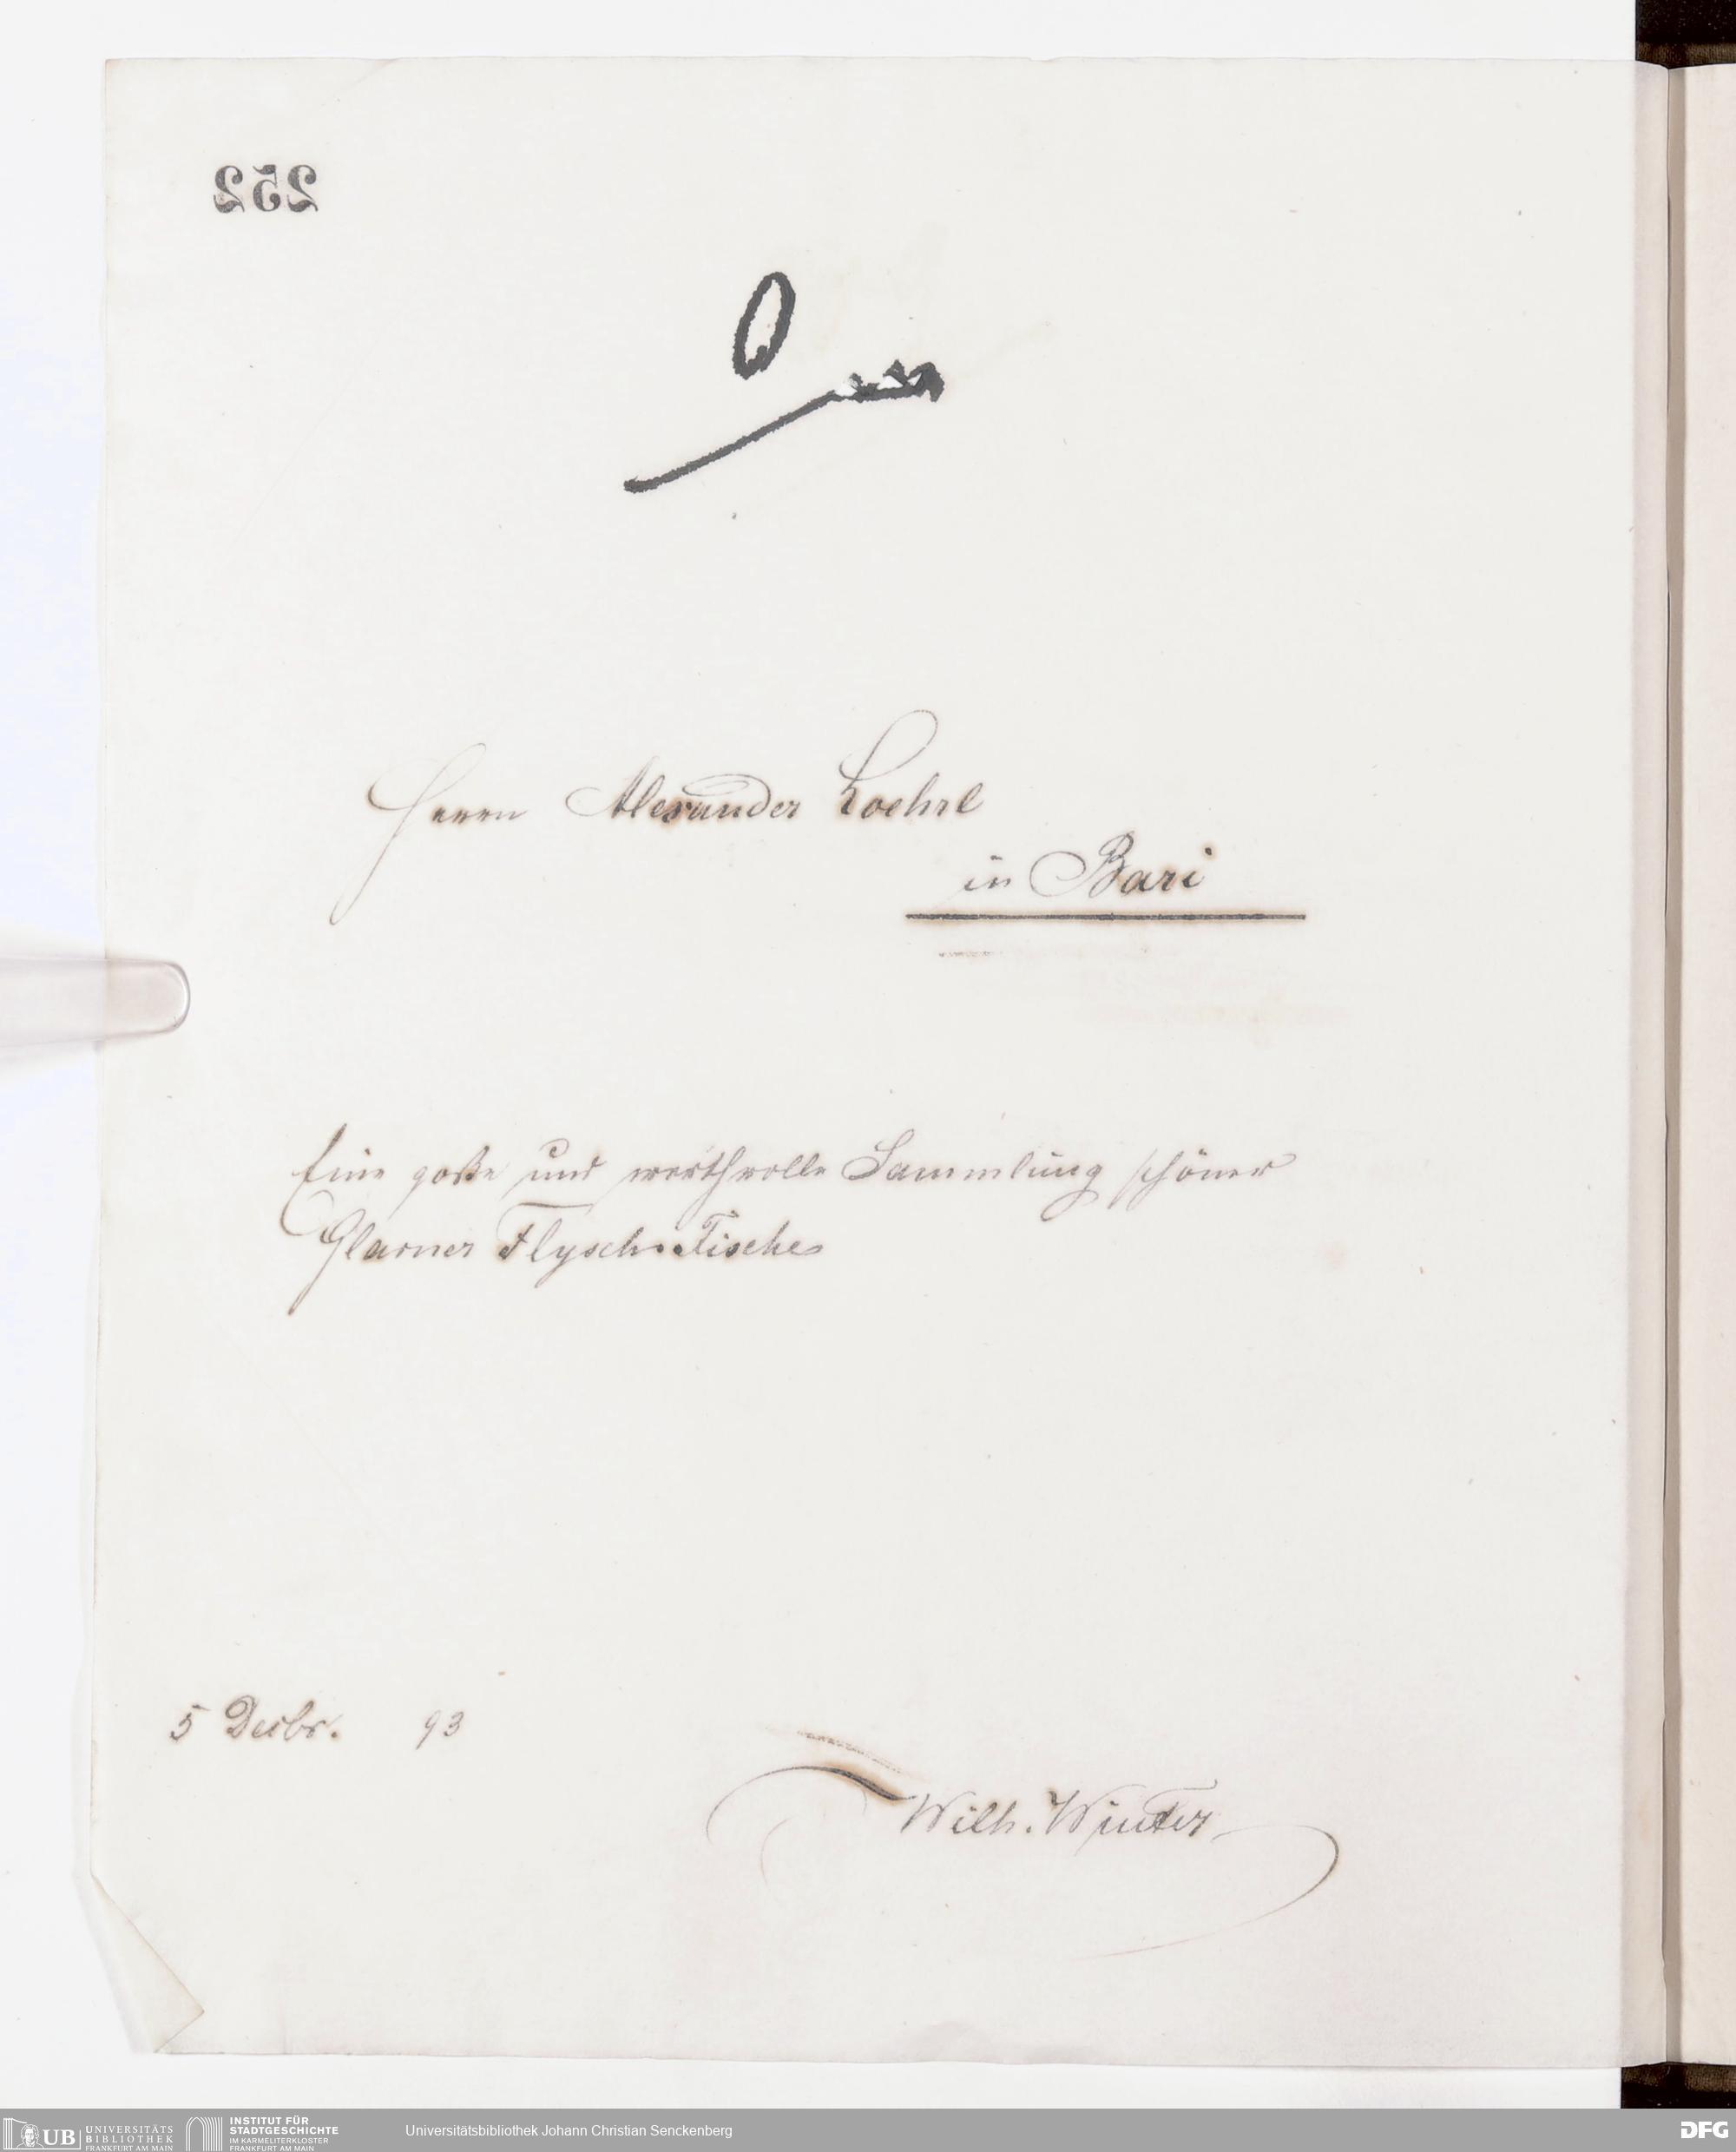 252
Herrn Alexander Koehrl
in Bari
Eine goße und werthvolle Sammlung schöner
Glarner Flysch-Fische
5 Decbr. 93
Wilh. Winter
UB UNIVERSITÄTS
BIBLIOTHEK
FRANKFURT AM MAIN
INSTITUT FÜR
STADTGESCHICHTE
IM KARMELITERKLOSTER
FRANKFURT AM MAIN
Universitätsbibliothek Johann Christian Senckenberg
DFG